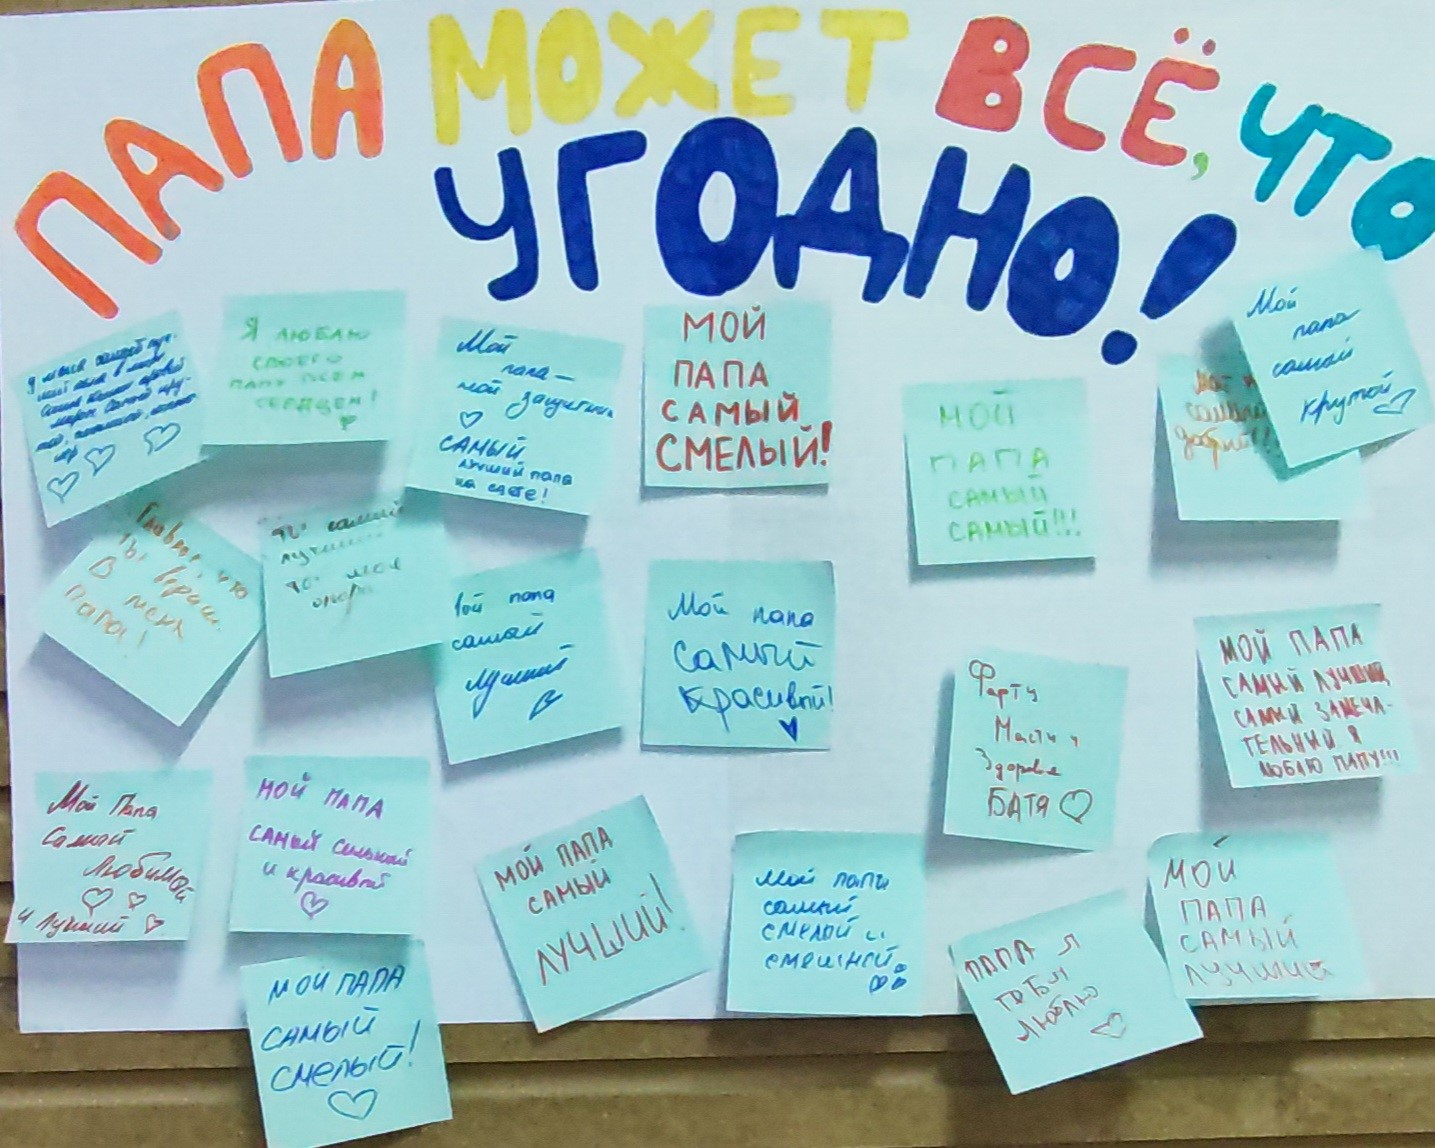 ПАПА МОЖЕТ ВСЁ, ЧТО
УГОДНО!
У меня самый луч-
ший папа в мире
самый
Самый кру-
той,
Я ЛЮБЛЮ
СВОЕГО
ПАПУ ВСЕМ
СЕРДЦЕМ!
Мой
папа —
мой защитник
САМЫЙ
лучший папа
на свете!
МОЙ
ПАПА
САМЫЙ
СМЕЛЫЙ!
МОЙ
ПАПА
САМЫЙ
САМЫЙ!!!
самый
добрый!!!
Мой
папа
самый
крутой
Главное, что
ты веришь
В меня
ПАПА!
Ты самый
лучший
ты моя
опора
Мой папа
самый
лучший
Мой папа
Самый
красивый!
Фарту
Масти и
Здоровья
БАТЯ
МОЙ ПАПА
САМЫЙ ЛУЧШИЙ,
САМЫЙ ЗАМЕЧА-
ТЕЛЬНИЙ Я
ЛЮБЛЮ ПАПУ!!!
Мой Папа
Самый
Любимый
и Лучший
МОЙ ПАПА
САМЫЙ сильный
и красивый
МОЙ ПАПА
САМЫЙ
ЛУЧШИЙ!
Мой папа
самый
смелый и
смешной
МОЙ
ПАПА
САМЫЙ
ЛУЧШИЙ
ПАПА Я
ТЕБЯ
ЛЮБЛЮ
МОЙ ПАПА
САМЫЙ
СМЕЛЫЙ!